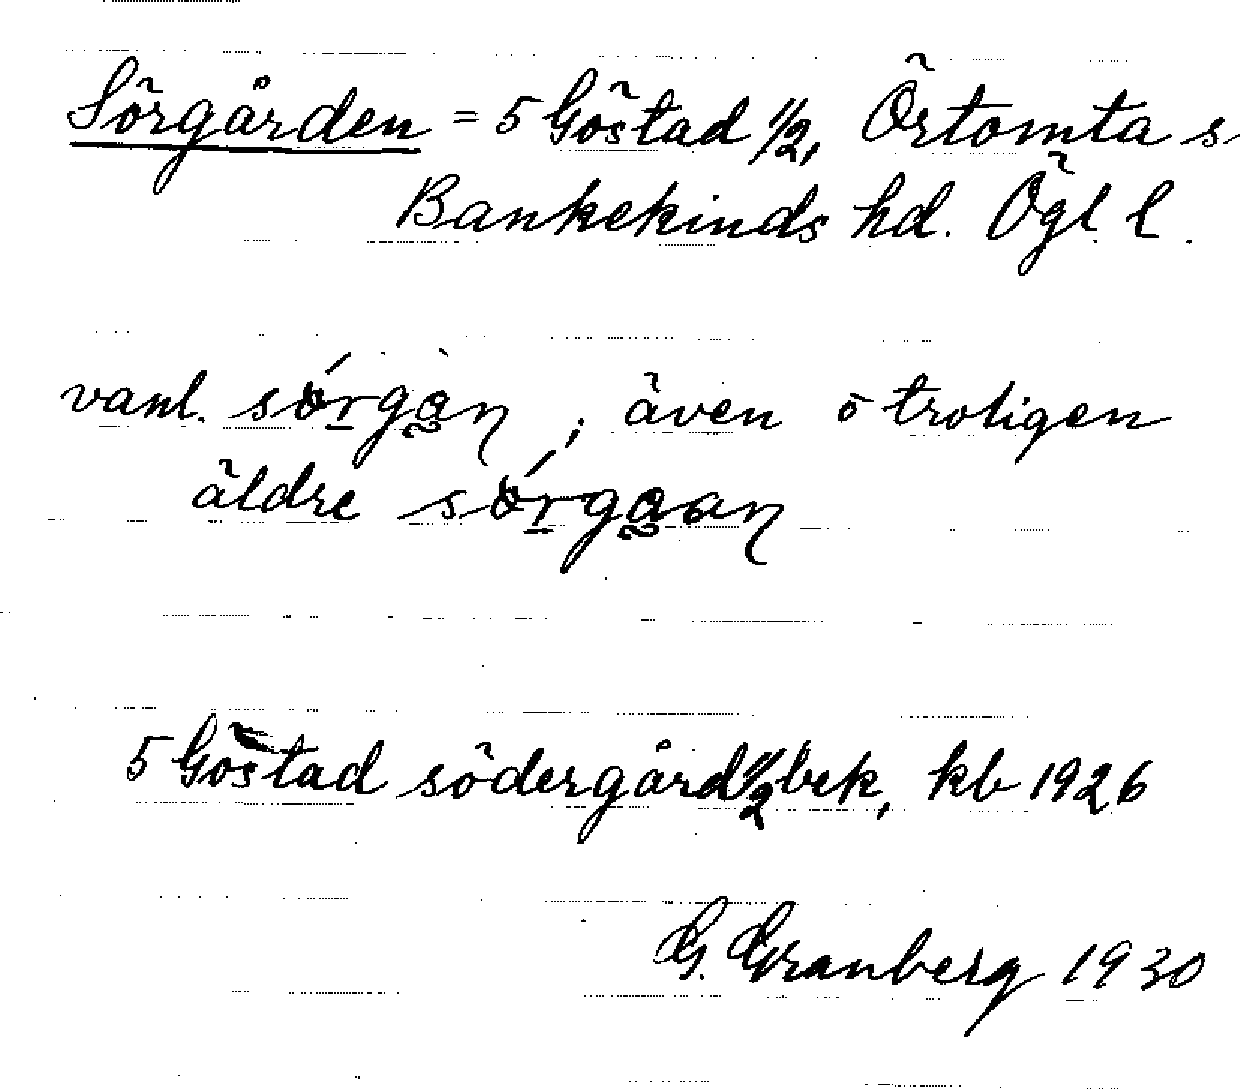 Sörgården = 5 Göstad 1/2, Örtomta s
Bankekinds hd. Ögl l.
vanl. sǿrgàn, även o troligen
äldre sǿrgaan
5 Göstad södergård 1/2 bek, kb 1926
G. Granberg 1930